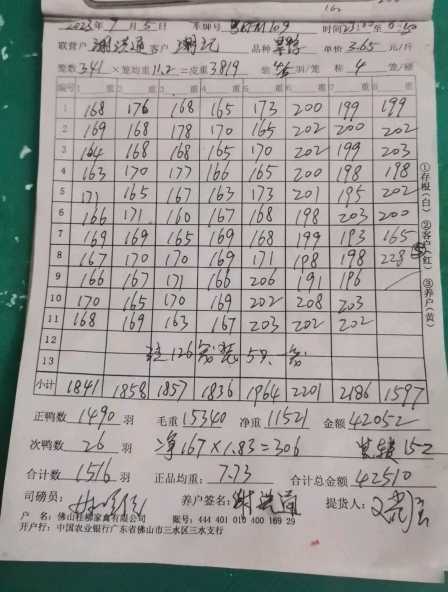 2023年9月5日 车牌号 时间23:00至
联营户 谢洪通 客户 品种 单价3.65元/斤
笼数341×笼均重11.2=皮重3819 装 羽/笼 称4笼/磅
编号 1 重 2 重 3 重 4 重 5 重 6 重 7 重 8 重
1 168 176 168 165 173 200 199 199
2 169 168 178 170 165 202 200 202
3 164 168 168 165 170 202 199 203
4 163 170 177 166 165 200 198 198
5 171 165 167 163 173 201 195 202
6 166 171 160 167 168 198 203 200
7 169 169 165 169 168 199 193 165
8 167 170 170 169 171 198 198 228
9 166 167 171 166 206 191 196
10 170 165 170 169 202 208 203
11 168 169 163 167 203 202 202
12
13
小计 1841 1858 1857 1836 1964 2201 2186 1597
正鸭数 1490 羽 毛重 15340 净重 11521 金额 42052
次鸭数 26 羽 净167×1.83=306 152
合计数 1516 羽 正品均重：7.73 合计总金额 42510
司磅员： 养户签名：谢洪通 提货人：
户 名：佛山桂柳家禽有限公司 账号：444 401 010 400 169 29
开户行：中国农业银行广东省佛山市三水区三水支行
①存根（白） ②客户（红） ③养户（黄）